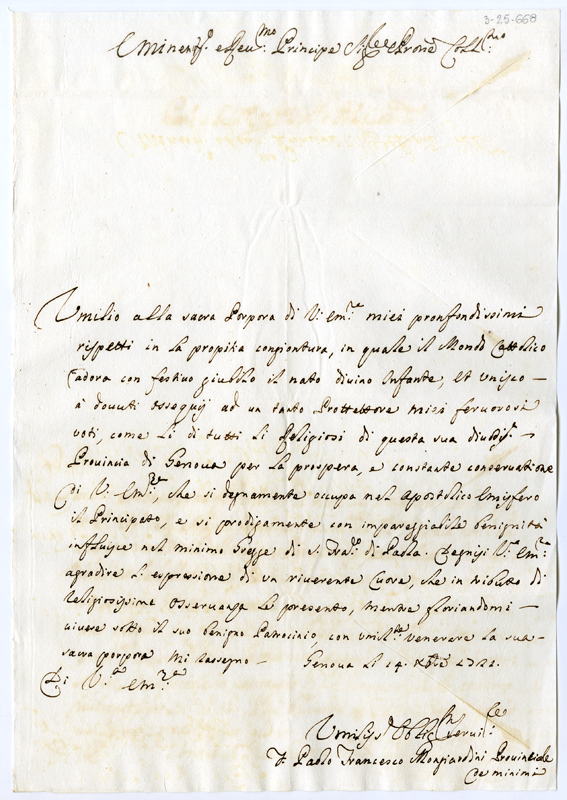 3-25-668
Eminen.mo e Reu.mo Principe Sig.re e Prone Coll.mo
Umilio alla sacra Porpora di V: Em.ze miei pronfondissimi
rispetti in la propitia congiontura, in quale il Mondo Cattolico
adora con festiuo giubilo il nato diuino Infante, et Unisco –
i douuti ossequij ad un tanto Prottettore miei feruorosi
voti, come li di tutti li Religiosi di questa sua –
Prouincia di Genoua per la prospera, e constante conseruatione
Di V: Em.ze, che si degnamente occupa nel Apostolico Emisfero
il Principato, e si prodigamente con impareggiabile benignità
influisce nel minimo Gregge di S. Fra.co di Paola. Degnisi V.a Em.ze
agradire l espressione di un riuerente Cuore, che in tributo di
religiosissime osseruanza le presento, mentre gloriandomi –
viuere sotto il suo benigno Patrocinio con umil.tà venerare la sua –
sacra porpora mi rassegno – Genoua li 14. Xbre 1722.
Di V.a Em.ze
Umiliss.o Obblig.mo seruit.re
F. Paolo Francesco Mongiardini Prouinciale
de minimi